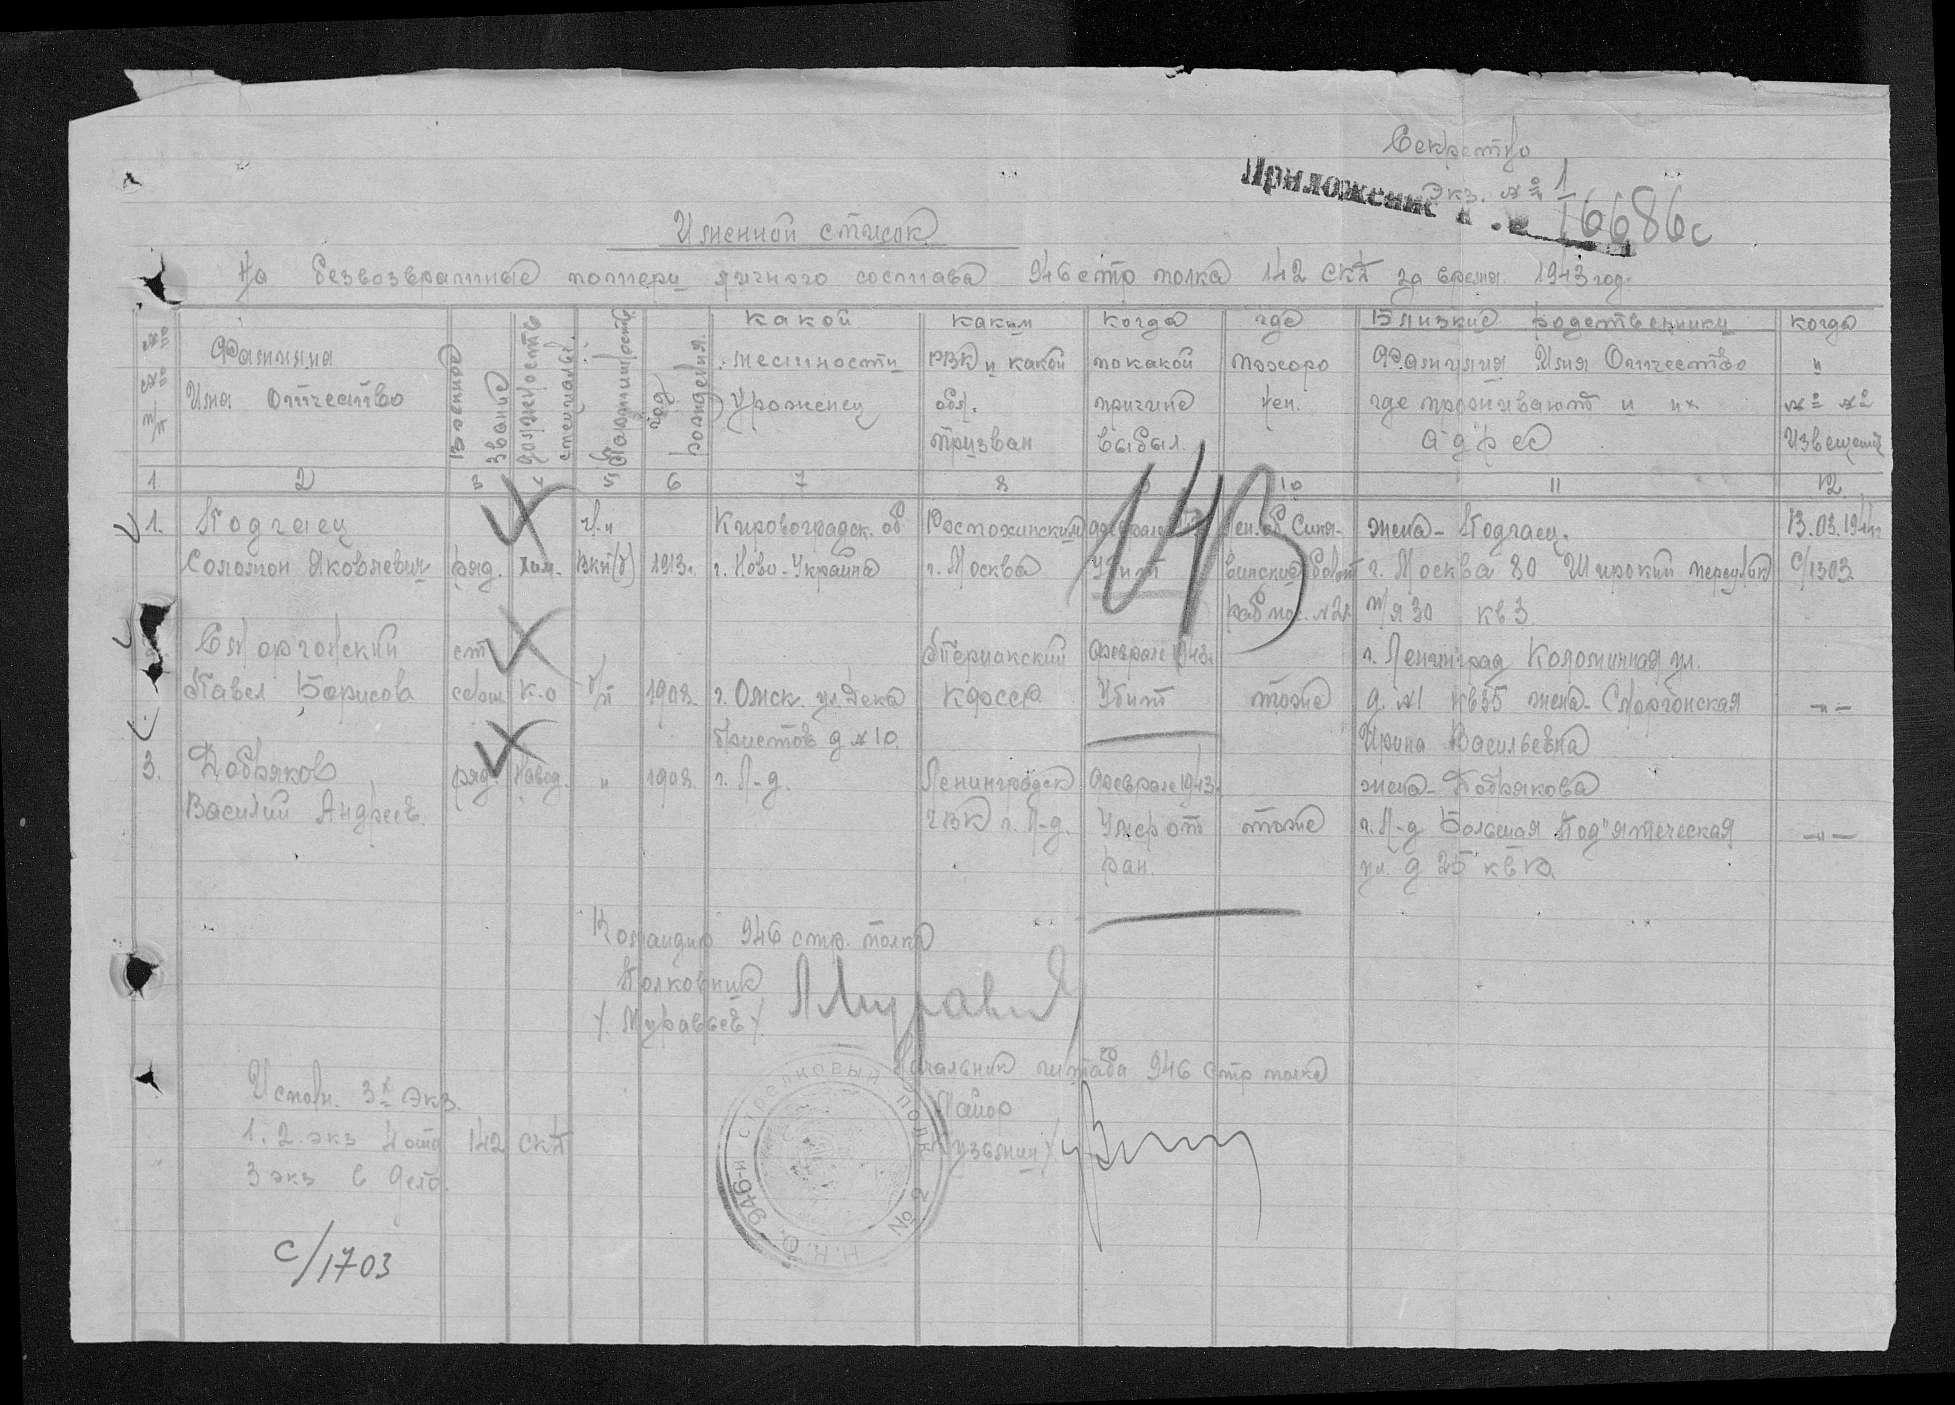 Секретно
Экз. № 1
Приложение к 16686с
Именной список
На безвозвратные потери личного состава 946 стр полка 142 СКД за время 1943 год.
№ № п/п
Фамилия Имя Отчество
Военное звание
должность специальн.
Партийность
год рождения
какой местности уроженец
каким РВК и какой обл. призван
когда по какой причине выбыл
где похоро нен.
Близкие родственники Фамилия Имя Отчество где проживают и их адрес
когда и № № Извещения
1 2 6 7 8 10 11 12
143
1. Подгаец Соломон Яковлевич
ряд. хим. ч.-н ВКП(б) 1913г.
Кировоградск. об г. Ново-Украина
Ростокинским г. Москва
феврале убит
Лен. об Синя- винские болот раб пос. №2
жена- Подгаец.
г. Москва 80 Широкий переулок
п/я 30 кв 3
13.03.1944г с/1303
Сморгонский Павел Борисов
ст серж к-о б/п 1908
г. Омск. ул Дека бристов д №10.
Териокский КФССР
Феврале 1943г. Убит
тоже
г. Ленинград Коломинная ул.
д. №1 кв 35 жена- Сморгонская
Ирина Васильевна
-"-
3. Добряков Василий Андреев.
ряд навод. " 1908
г. Л-д.
Ленинградск ГВК г. Л-д.
Феврале 1943. Умер от ран.
тоже
жена- Добрякова
г. Л-д Большая Под"яческая
ул. д 25 кв 10.
-"-
Командир 946 стр. полка
Полковник
/Муравьев/
Начальник штаба 946 стр полка
Майор
/Кузьмин/
946-й стрелковый полк Н.К.О. № 2
Исполн. 3х экз.
1. 2. экз 4 отд 142 СКД
3 экз в дело.
с/1703